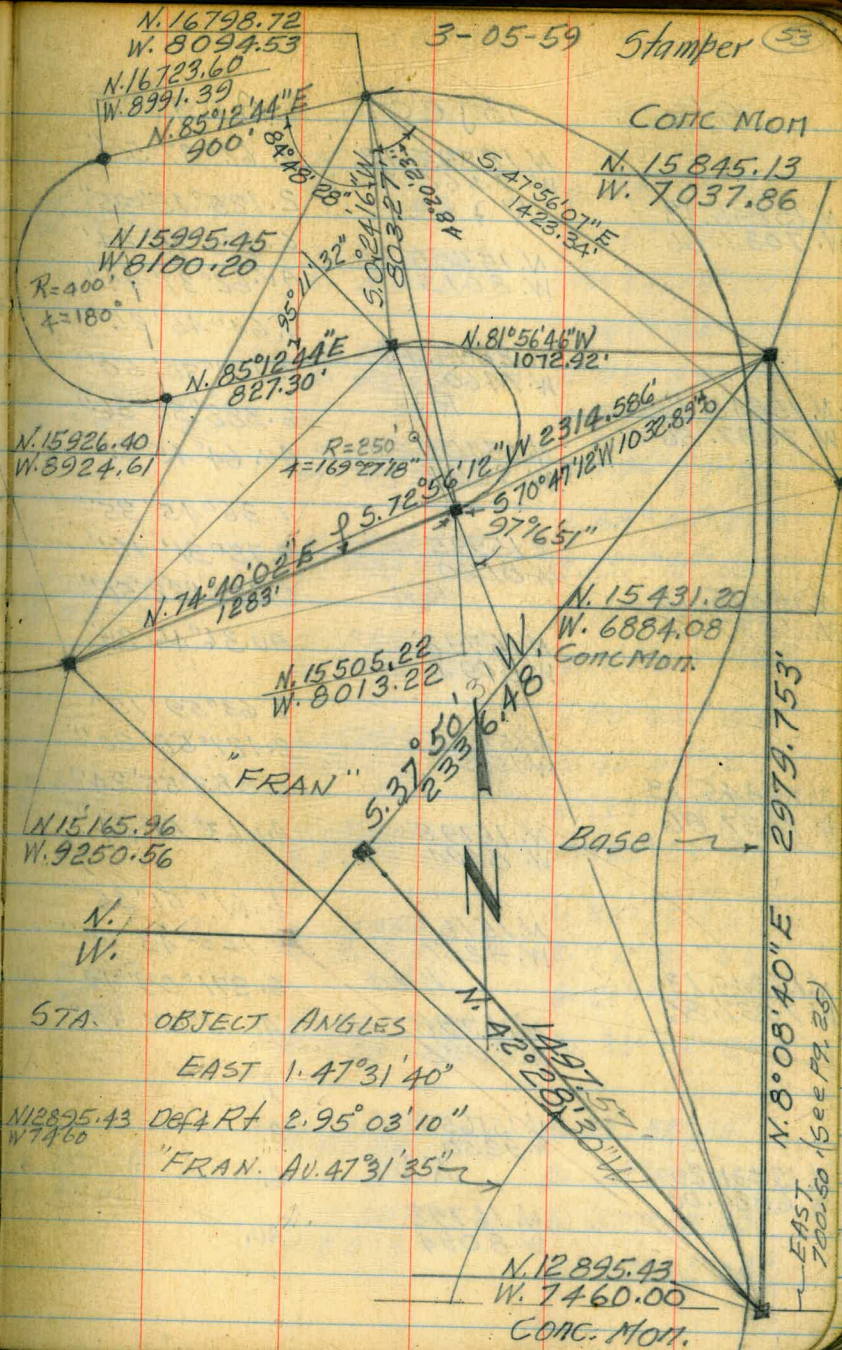 3-05-59
Stamper
53
N. 16798.72
W. 8094.53
N. 16723.60
W. 8991.39
N. 85°12'44"E
900'
84°48'28"
S. 0°24'16"W
803.27'
48°20'23"
S. 47°56'07"E
1423.34'
Conc Mon
N. 15845.13
W. 7037.86
N 15995.45
W 8100.20
R=400'
∡=180°
95°11'32"
N. 85°12'44"E
827.30'
N. 81°56'46"W
1072.92'
N. 15926.40
W. 8924.61
R=250'
∡=169°27'18"
S. 72°56'12"W 2314.586'
S 70°47'12"W 1032.89
97°16'51"
N. 74°40'02"E
1283'
N. 15431.20
W. 6884.08
Conc Mon.
N. 15505.22
W. 8013.22
S. 37°50'31"W
2336.48'
"FRAN"
N 15165.96
W. 9250.56
Base
N. 8°08'40"E 2979.753'
N.
W.
N
N. 42°28'30"W
1497.57
STA. OBJECT ANGLES
EAST 1. 47°31'40"
N12895.43
W7460
Def∡ Rt 2. 95°03'10"
"FRAN. Av. 47°31'35"
EAST
700.50' (See Pg. 25)
N. 12895.43
W. 7460.00
Conc. Mon.